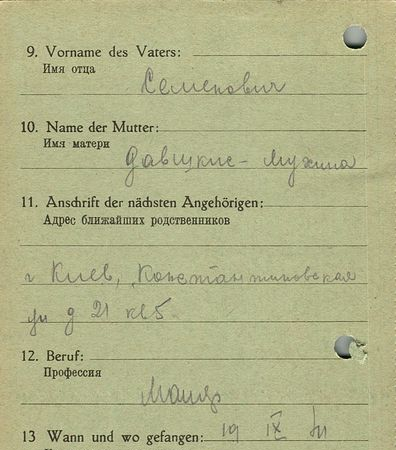 9. Vorname des Vaters:
Имя отца
Семенович
10. Name der Mutter:
Имя матери
Мухина
11. Anschrift der nächsten Angehörigen:
Адрес ближайших родственников
г Киев, Константиновская
ул д 21 кв 5
12. Beruf:
Профессия
13 Wann und wo gefangen: 19 IX